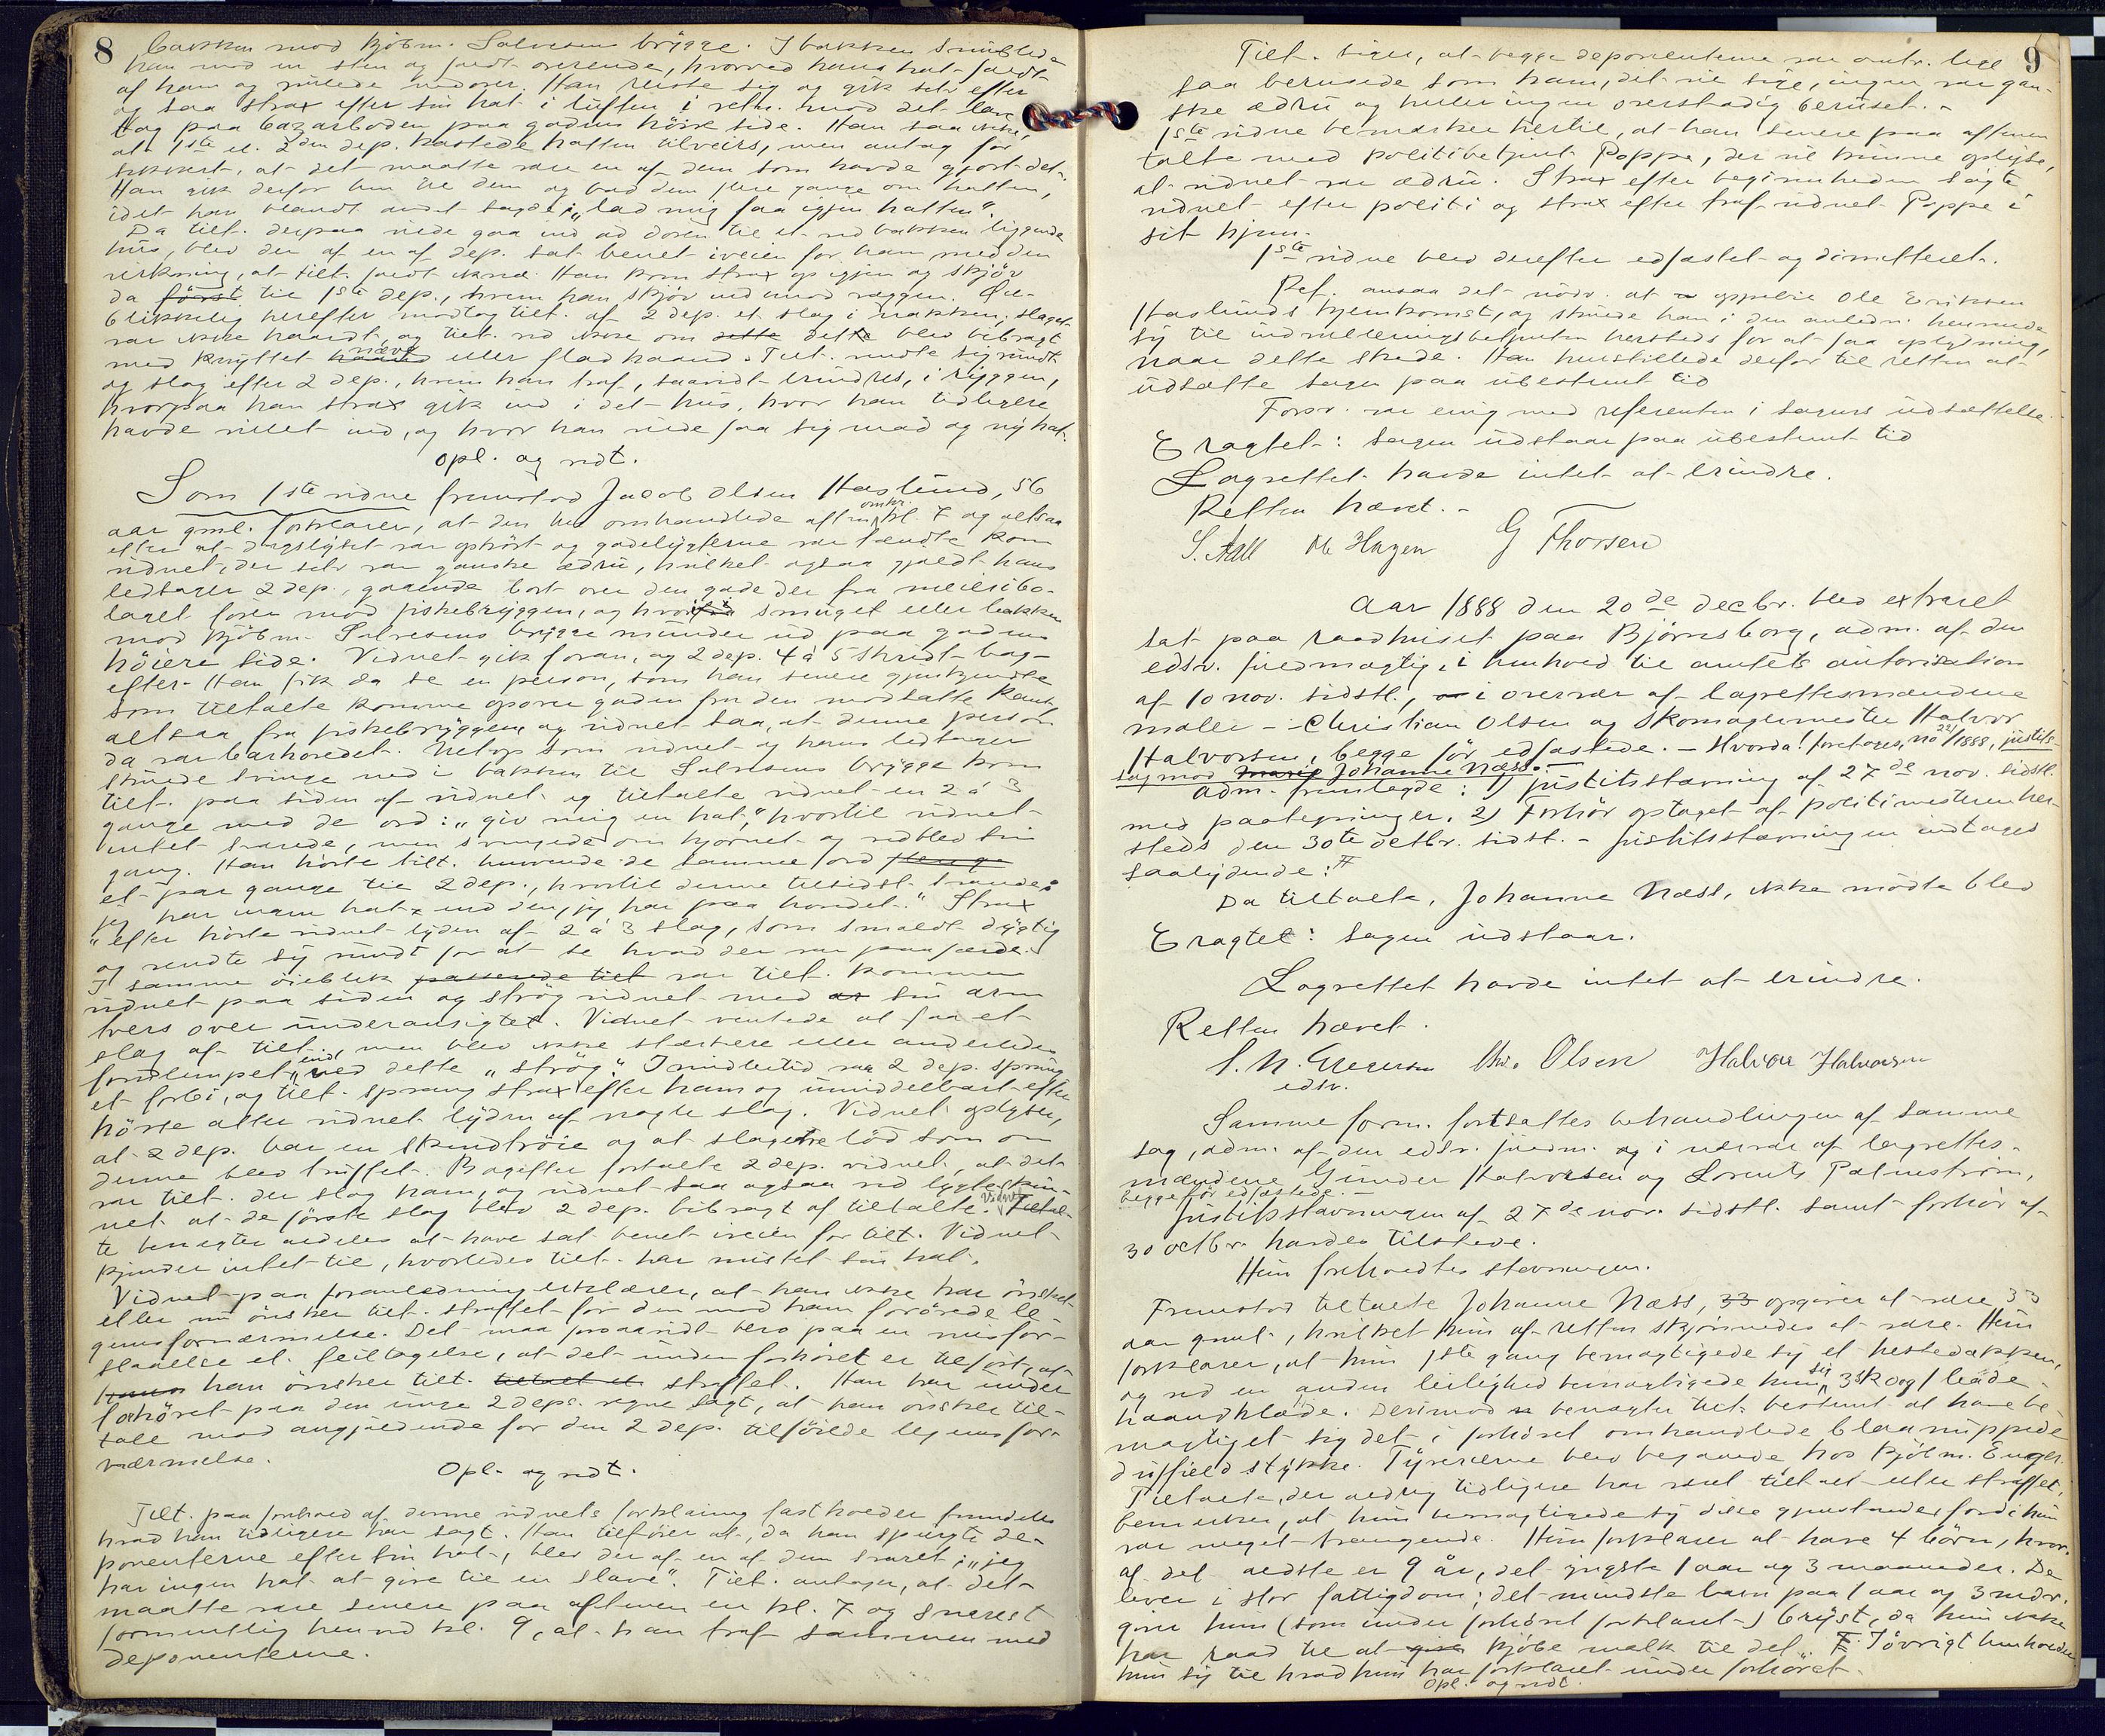 8
bakken mod kjöbm. Salvesens brygge. I bakken snublede
han mod en sten og faldt overende, hvorved hans hat faldt
af ham og rullede nedover. Han reiste sig og gik selv efter
og saa strax efter sin hat i luften i retn. mod det lave
tag paa bazarboden paa gadens höire side. Han saa ikke,
at 1ste el. 2den dep. kastede hatten tilveirs, men antog for
sikkert, at det maatte være en af dem som havde gjort det.
Han gik derfor hen til dem og bad dem flere gange om hatten,
idet han blandt andet sagde: „lad mig faa igjen hatten".
Da tilt. derpaa vilde gaa ind ad dören til et ved bakken liggende
hus, blev der af en af dep. sat benet iveien for ham med den
virkning, at tilt. faldt iknæ. Han kom strax op igjen og skjöv
da först til 1ste dep., hvem han skjöv ind imod væggen. Öie-
blikkelig herefter modtog tilt. af 2 dep. et slag i nakken; slaget
var ikke haardt, og tilt. ved ikke om dette det blev bibragt
med knyttet næve eller flad haand. Tilt. vendte sig rundt
og slog efter 2 dep., hvem han traf, saavidt erindres, i ryggen,
hvorpaa han strax gik ind i det hus, hvor han tidligere
havde villet ind, og hvor han vilde faa sig mad og ny hat.
Opl. og vedt.
Som 1ste vidne fremstod Jacob Olsen Haslund, 56
aar gml. forklarer, at den her omhandlede aften omtr. kl. 7 og altsaa
efter at dagslyset var ophört og gadelygterne var tændte kom
vidnet, der selv var ganske ædru, hvilket ogsaa gjaldt hans
ledsager 2 dep., gaaende bort over den gade der fra meieribo-
laget förer mod fiskebryggen, og hvor smuget eller bakken
mod kjöbm. Salvesens brygge munder ud paa gadens
höiere side. Vidnet gik foran, og 2 dep. 4 à 5 skridt bag-
efter. Han fik da se en person, som han senere gjenkjendte
som tiltalte komme opover gaden fra den modsatte kant,
altsaa fra fiskebryggen, og vidnet saa, at denne person
da var barhovedet. Netop som vidnet og hans ledsager
skulde svinge ned i bakken til Salvesens brygge kom
tilt. paa siden af vidnet og tiltalte vidnet en 2 á 3
gange med de ord: „giv mig en hat," hvortil vidnet
intet svarede, men svingede om hjörnet og vedblev sin
gang. Han hörte tilt. henvende de samme ord
et par gange til 2 dep., hvortil denne tilsidst svarede:
„jeg har ingen hat, end den, jeg har paa hovedet." Strax
efter hörte vidnet lyden af 2 á 3 slag, som smaldt dygtig
og vendte sig rundt for at se hvad der var paafærde.
I samme öieblik passerede tilt var tilt. kommen
vidnet paa siden og strög vidnet med sin arm
tvers over underansigtet. Vidnet ventede at faa et
slag af tilt., men blev ikke stærkere eller anderledes
forulempet end ved dette „strög". Imidlertid var 2 dep. sprung
et forbi, og tilt. sprang strax efter ham og umiddelbart efter
hörte atter vidnet lyden af nogle slag. Vidnet oplyser,
at 2 dep. bar en skindtröie og at slagene löd som om
denne blev truffet. Bagefter fortalte 2 dep. vidnet, at det
var tilt. der slog ham, og vidnet saa ogsaa ved lygteskin-
net at de förste slag blev 2 dep. bibragt af tiltalte. Vidnet
benegter aldeles at have sat benet iveien for tilt. Vidnet
kjender intet til, hvorledes tilt. har mistet sin hat.
Vidnet paa foranledning erklærer, at han ikke har önsket
eller nu önsker tilt. straffet for den mod ham forövede le-
gemsfornærmelse. Det maa forsaavidt bero paa en misfor-
staaelse el. feiltagelse, at det under forhöret er tilfört, at
han önsker tilt. straffet. Han har under
forhöret paa den unge 2 deps. vegne sagt, at han önsker til-
tale mod angjældende for den 2 dep. tilföiede legemsfor-
nærmelse.
Opl. og vedt.
Tilt. paa forhold af denne vidnets forklaring fastholder fremdeles
hvad han tidligere har sagt. Han tilföier at, da han spurgte de-
ponenterne efter sin hat, blev der af en af dem svaret: „jeg
har ingen hat at give til en slave". Tilt. antager, at det
maatte være senere paa aftenen en kl. 7 og snarest
formentlig henved kl. 9, at han traf sammen med
deponenterne.
9
Tilt. siger, at begge deponenterne var omtr. lige
saa berusede som ham, det vil sige, ingen var gan-
ske ædru og heller ingen overstadig beruset. -
1ste vidne bemærker hertil, at han senere paa aftenen
talte med politibetjent Poppe, der vil kunne oplyse,
at vidnet var ædru. Strax efter begivenheden sögte
vidnet efter politi og strax efter traf vidnet Poppe i
sit hjem.
1ste vidne blev derefter edfæstet og dimitteret.
Ref. ansaa det nödv. at oppebie Ole Eriksen
Haslunds hjemkomst, og skulde han i den anledn. henvende
sig til indrulleringsbetjenten hersteds for at faa oplysning,
naar dette skede. Han henstillede derfor til retten at
udsætte sagen paa ubestemt tid
Forsv. var enig med referenten i sagens udsættelse.
Eragtet: Sagen udstaar paa ubestemt tid
Lagrettet havde intet at erindre.
Retten hævet. -
S. Aall Ole Hagen G Thorsen
Aar 1888 den 20de decbr. blev extraret
sat paa raadhuset paa Björnsborg, adm. af den
edsv. fuldmægtig, i henhold til amtets autorisation
af 10 nov. sidstl., i overvær af lagrettesmændene
maler Christian Olsen og skomagermester Halvor
Halvorsen, begge för edfæstede. - Hvorda! foretoges no 22/1888, justits-
sag mod Johanne Næss. -
Adm. fremlagde: 1) justitsstævning af 27de nov. sidstl.
med paategninger. 2) Forhör optaget af politimesteren her-
steds den 30te octbr. sidstl. - Justitsstævningen indtages
saalydende:
Da tiltalte, Johanne Næss, ikke mödte blev
Eragtet: Sagen udstaar.
Lagrettet havde intet at erindre.
Retten hævet.
Chr. Olsen Halvor Halvorsen
edsv.
Samme form. fortsattes behandlingen af samme
sag, adm. af den edsv. fuldm. i nærvær af lagrettes-
mændene Gunder Halvorsen og Lorents Palmeström,
begge för edfæstede. -
Justitsstævningen af 27de nov. sidstl. samt forhör af
30 octbr. havdes tilstede.
Hun foreholdtes stævningen.
Fremstod tiltalte Johanne Næss, opgiver at være 33
aar gml., hvilket hun af retten skjönnedes at være. Hun
forklarer, at hun 1ste gang bemægtigede sig et hestedækken,
og ved en anden leilighed bemægtigede hun sig 3 sk og 1 bade-
haandklæde. Derimod benægter tilt. bestemt at have be-
mægtiget sig det i forhöret omhandlede blaanuppede
duffield stykke. Tyverierne blev begaaede hos kjöbm. Enger.
Tiltalte, der aldrig tidligere har været tiltalt eller straffet,
bemærker, at hun bemægtigede sig disse gjenstande, fordi hun
var meget trængende. Hun forklarer at have 4 börn, hvor-
af det ældste er 9 år, det yngste 1 aar og 3 maaneder. De
lever i stor fattigdom; det mindste barn paa 1 aar og 3 mdr.
giver hun (som under forhöret forklaret) bryst, da hun ikke
har raad til at kjöbe melk til det. Iövrigt henholder
hun sig til hvad hun har forklaret under forhöret.
Opl. og vedt.